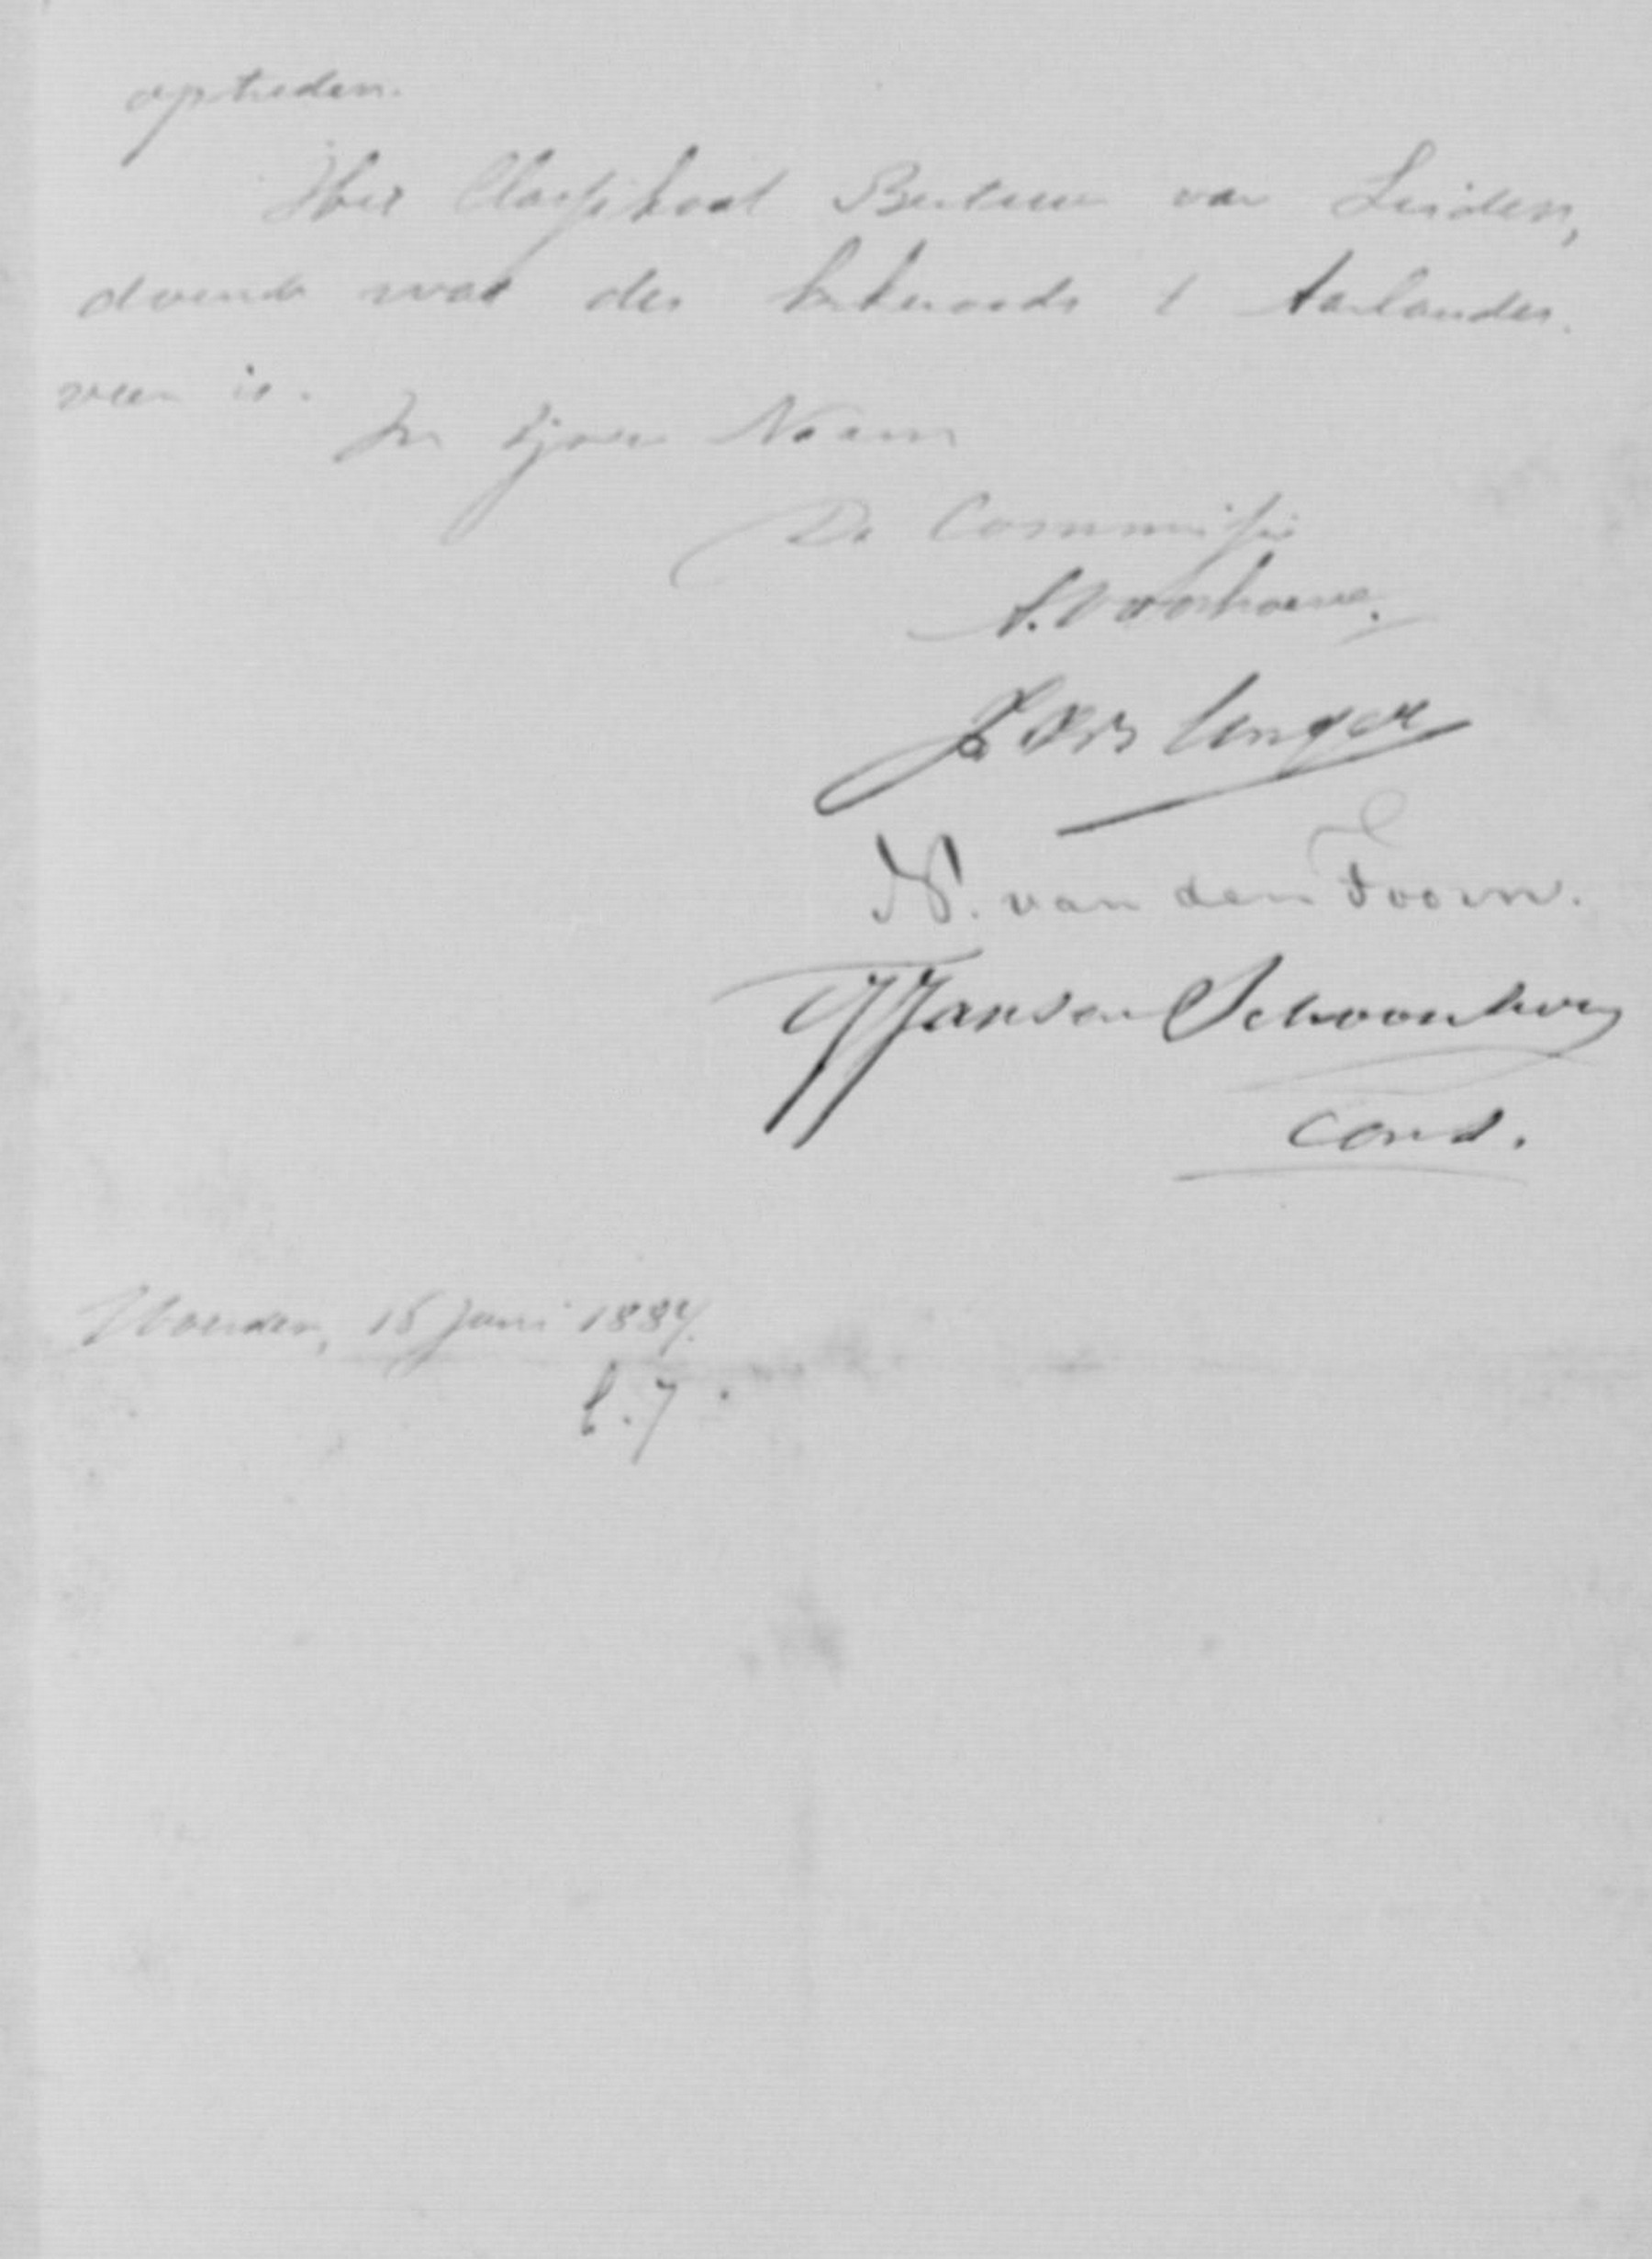 optreden.
Het Classikaal Bestuur van Leiden,
doende wat des kerkeraads t Aarlander
veen is.
In zijnen Naam
De Commissie
A. Voorhoeve.
J. Unger
N. van den Toorn.
Jansen Schoonhoven
Cons.
Woerden, 15 Juni 1887.